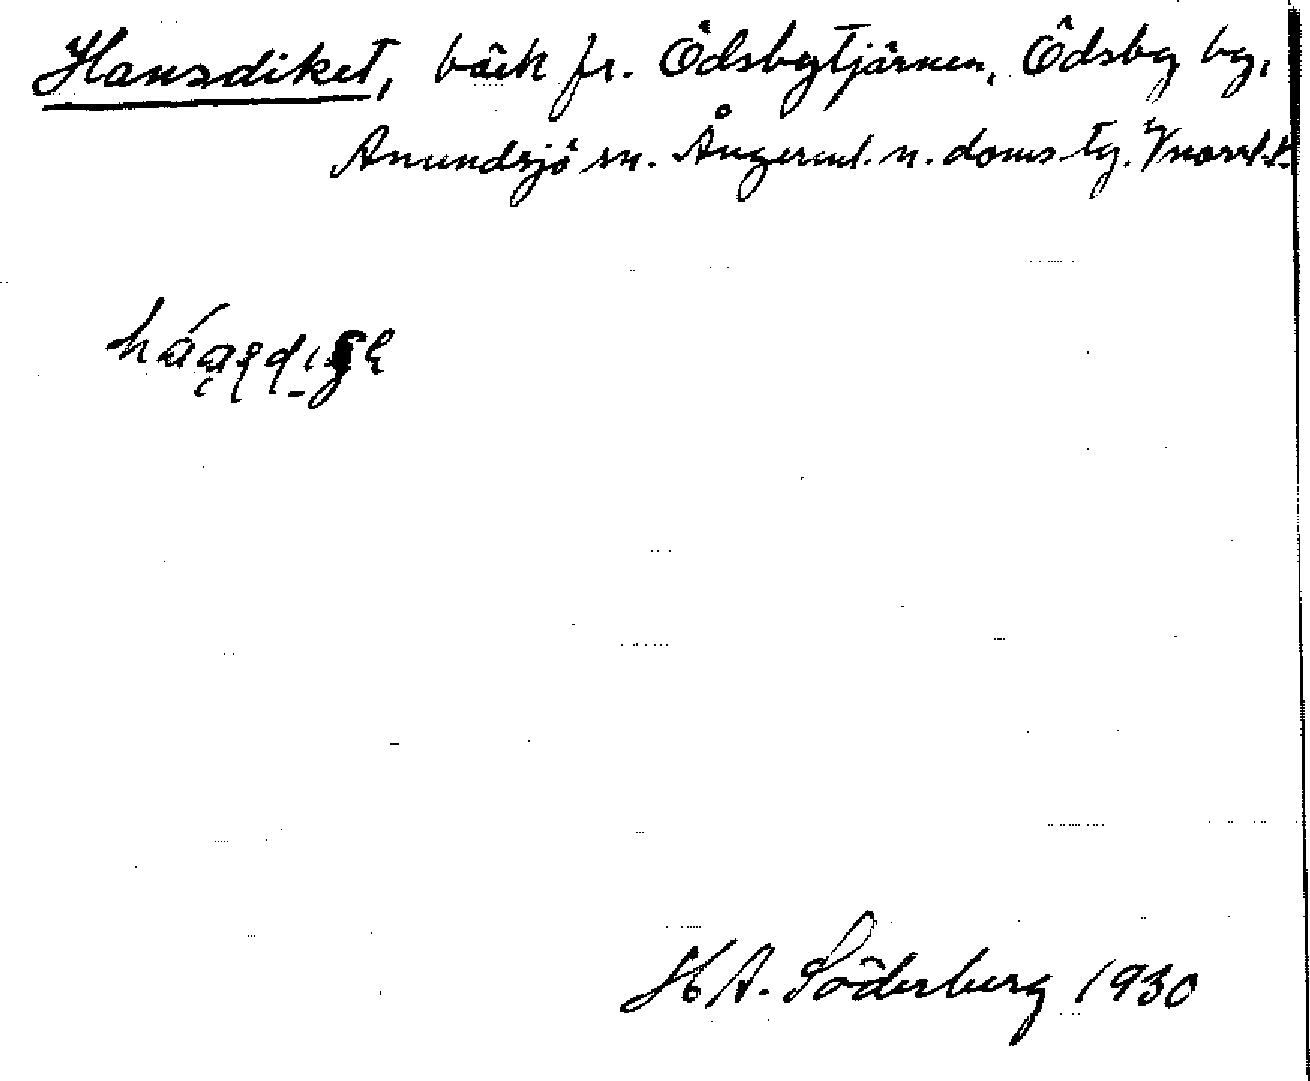 Hansdiket, bäck fr. Ödsbytjärnen, Ödsby by,
Anundsjö sn. Ångerml. n. doms. tg. V norrl. l.
H A. Söderberg 1930